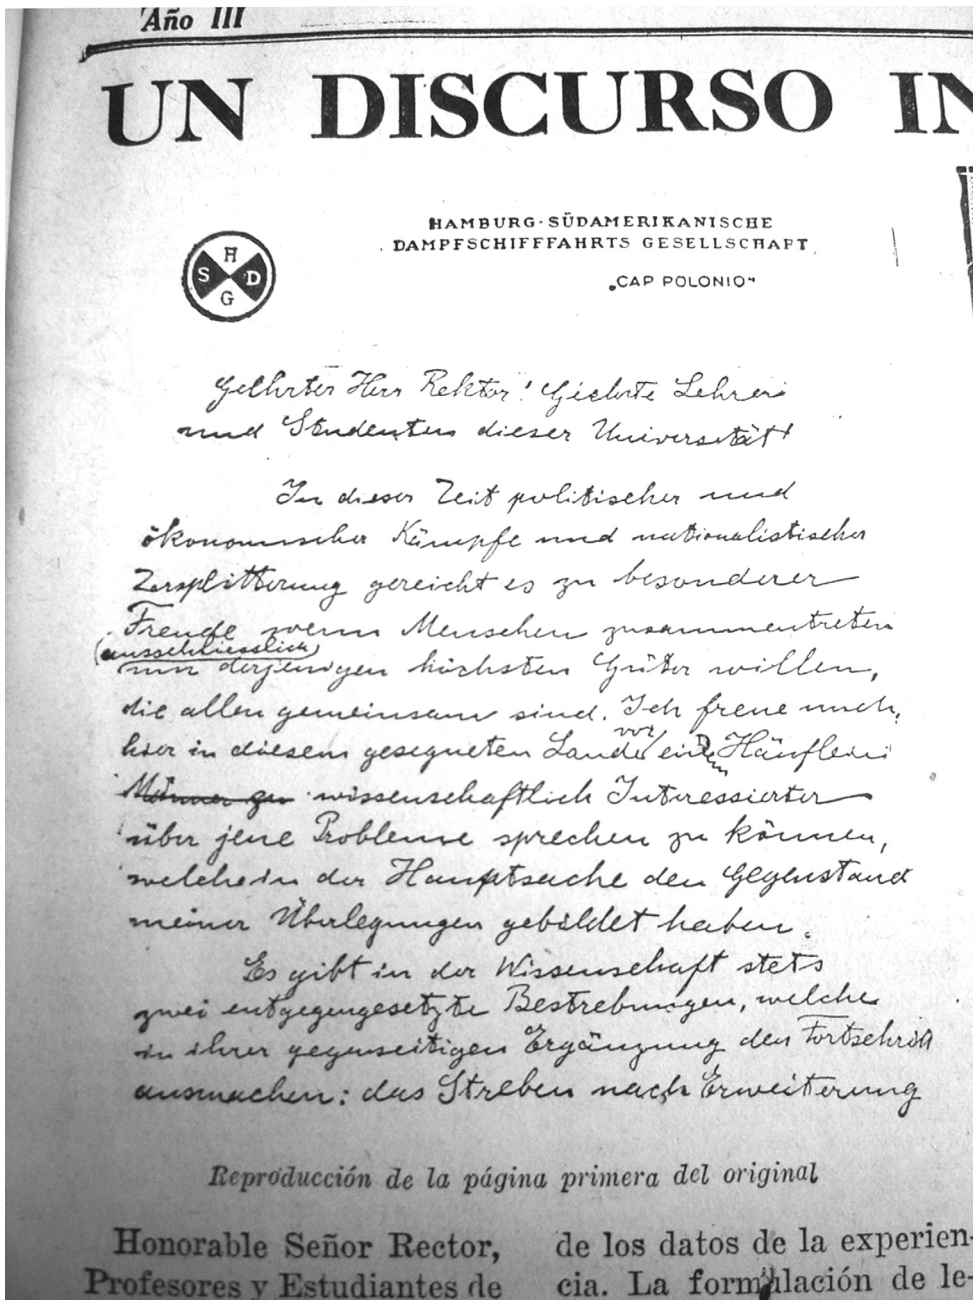 Año III
UN DISCURSO IN
HAMBURG-SÜDAMERIKANISCHE
DAMPFSCHIFFFAHRTS GESELLSCHAFT
H
S D
G
„CAP POLONIO“
Geehrter Herr Rektor! Geehrte Lehrer
und Studenten dieser Universität!
In dieser Zeit politischer und
ökonomischer Kämpfe und nationalistischer
Zersplitterung gereicht es zu besonderer
Freude wenn Menschen zusammentreten
(ausschliesslich)
um derjenigen höchsten Güter willen,
die allen gemeinsam sind. Ich freue mich,
hier in diesem gesegneten Lande vor einem Häuflein
wissenschaftlich Interessierter
über jene Probleme sprechen zu können,
welche in der Hauptsache den Gegenstand
meiner Überlegungen gebildet haben.
Es gibt in der Wissenschaft stets
zwei entgegengesetzte Bestrebungen, welche
in ihrer gegenseitigen Ergänzung den Fortschritt
ausmachen: das Streben nach Erweiterung
Reproducción de la página primera del original
Honorable Señor Rector,
Profesores y Estudiantes de
de los datos de la experien-
cia. La formulación de le-